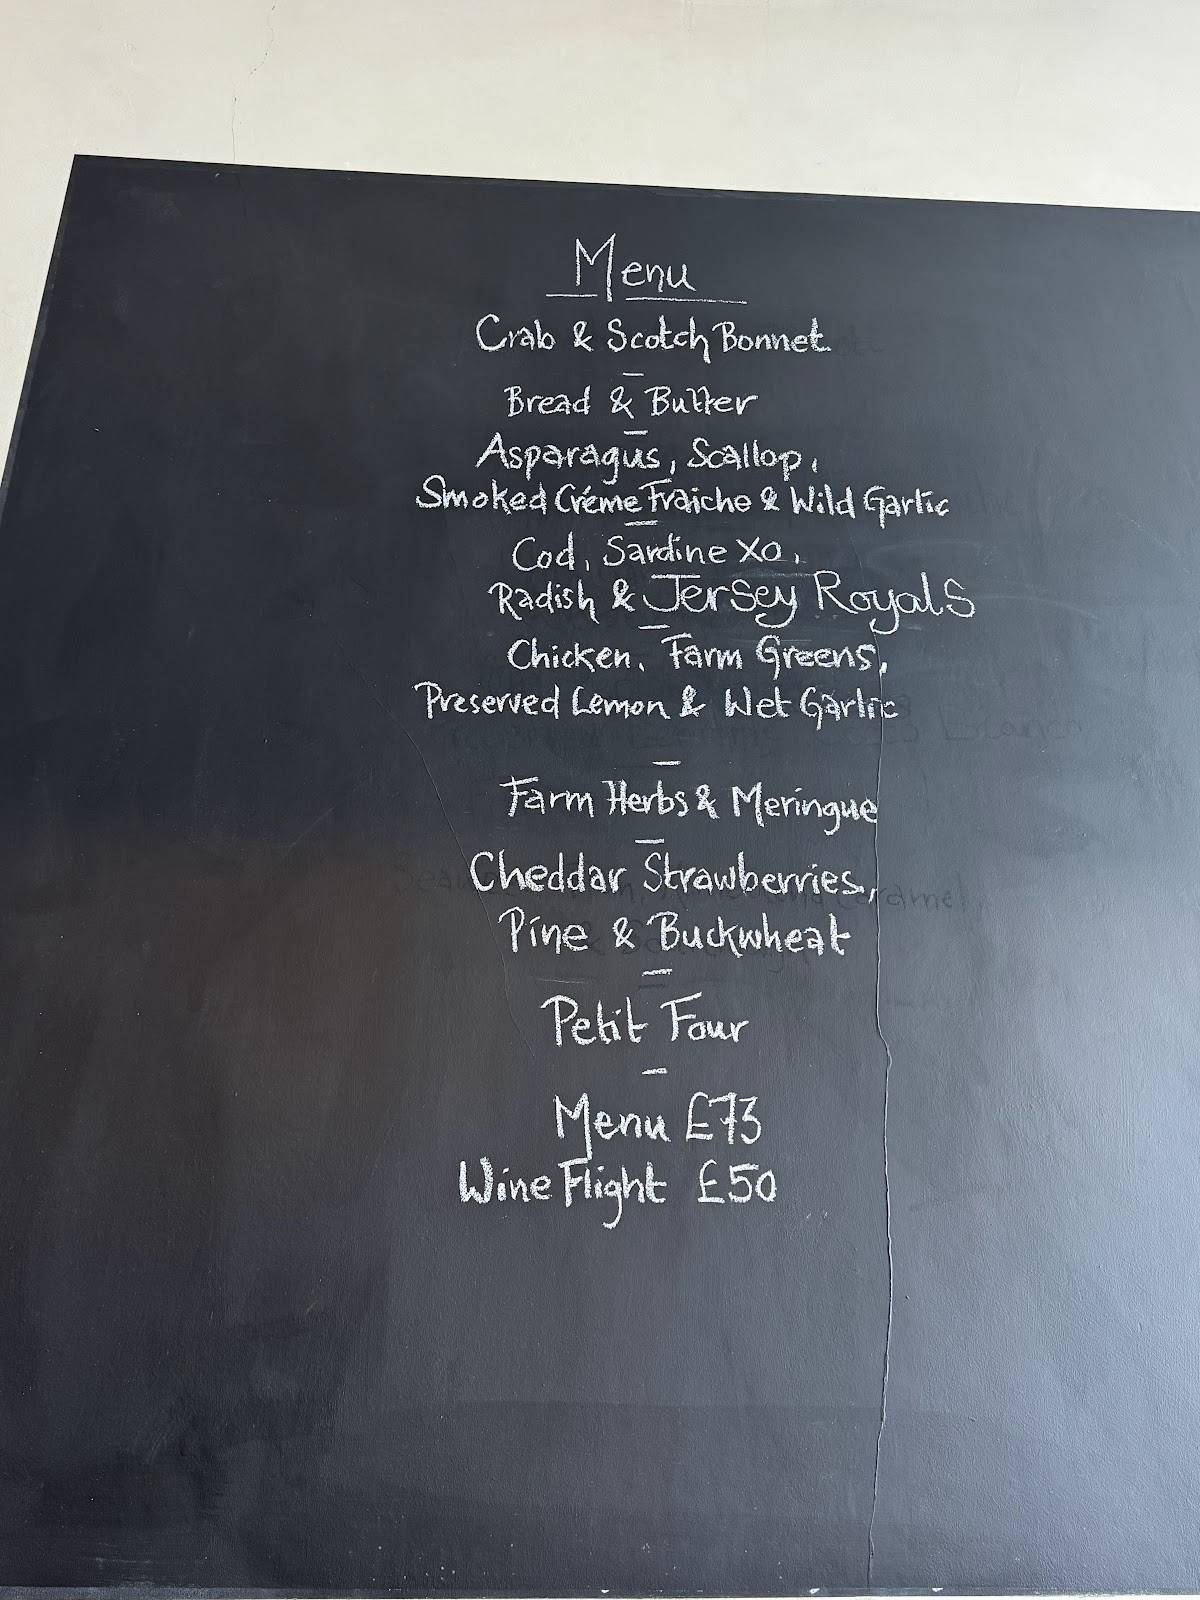 Menu
Crab & Scotch Bonnet
Bread & Butter
Asparagus, Scallop,
Smoked Créme Fraiche & Wild Garlic
Cod, Sardine XO,
Radish & Jersey Royals
Chicken, Farm Greens,
Preserved Lemon & Wet Garlic
Farm Herbs & Meringue
Cheddar Strawberries,
Pine & Buckwheat
Petit Four
Menu £73
Wine Flight £50